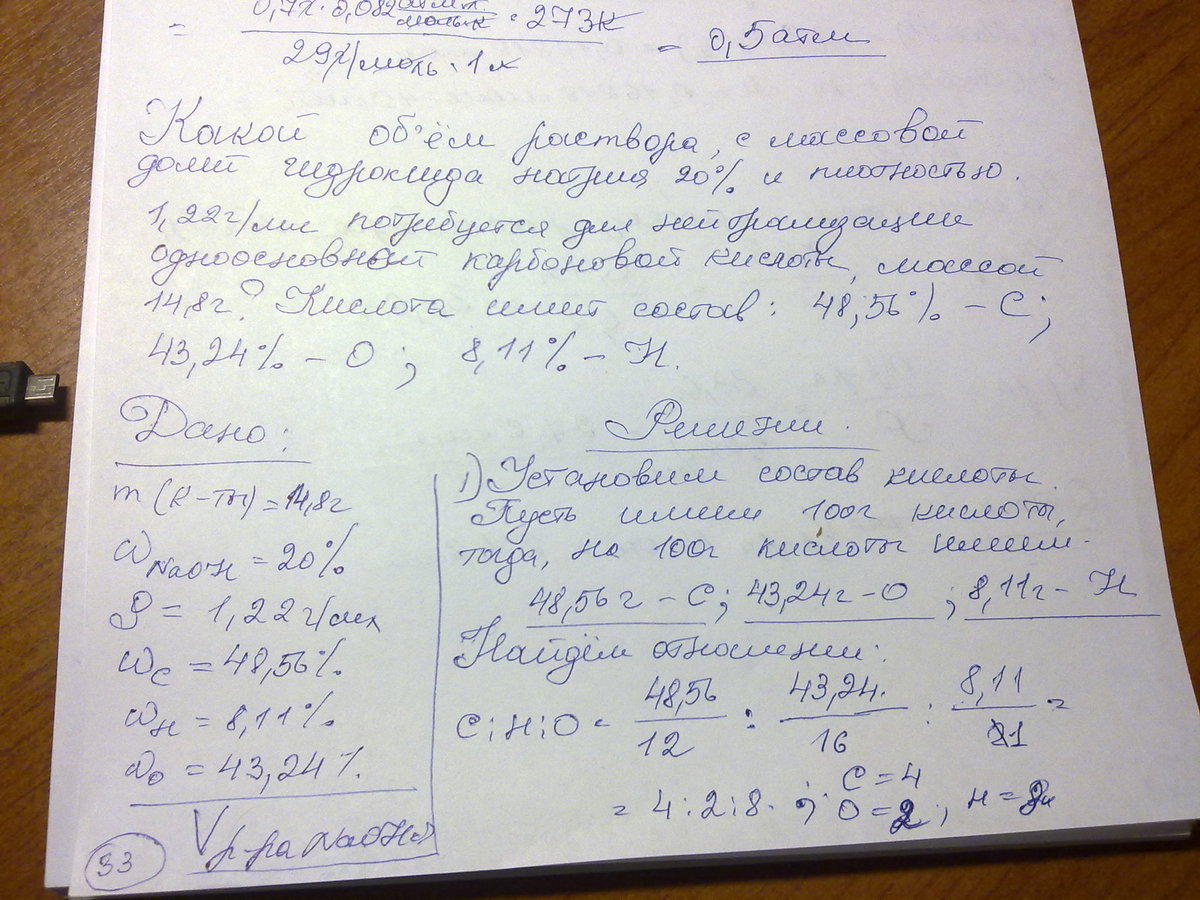 = 0,7г · 0,082 атм·л/моль·К · 273К
29г/моль · 1л = 0,5 атм
Какой об'ём раствора, с массовой
долей гидроксида натрия 20% и плотностью.
1,22г/мл потребуется для нейтрализации
одноосновной карбоновой кислоты, массой
14,8г? Кислота имеет состав: 48,56% – C;
43,24% – O; 8,11% – H.
Дано:
m (к-ты) = 14,8г
ω NaOH = 20%
ρ = 1,22г/мл
ωC = 48,56%
ωH = 8,11%
ωO = 43,24%.
V р-ра NaOH
33
Решение.
1) Установим состав кислоты.
Пусть имеем 100г кислоты,
тогда, на 100г кислоты имеем.
48,56г – C; 43,24г – O; 8,11г – H
Найдём отношение:
C:H:O = 48,56/12 : 43,24/16 : 8,11/1 =
= 4:2:8. ; C = 4
O = 2; H = 8